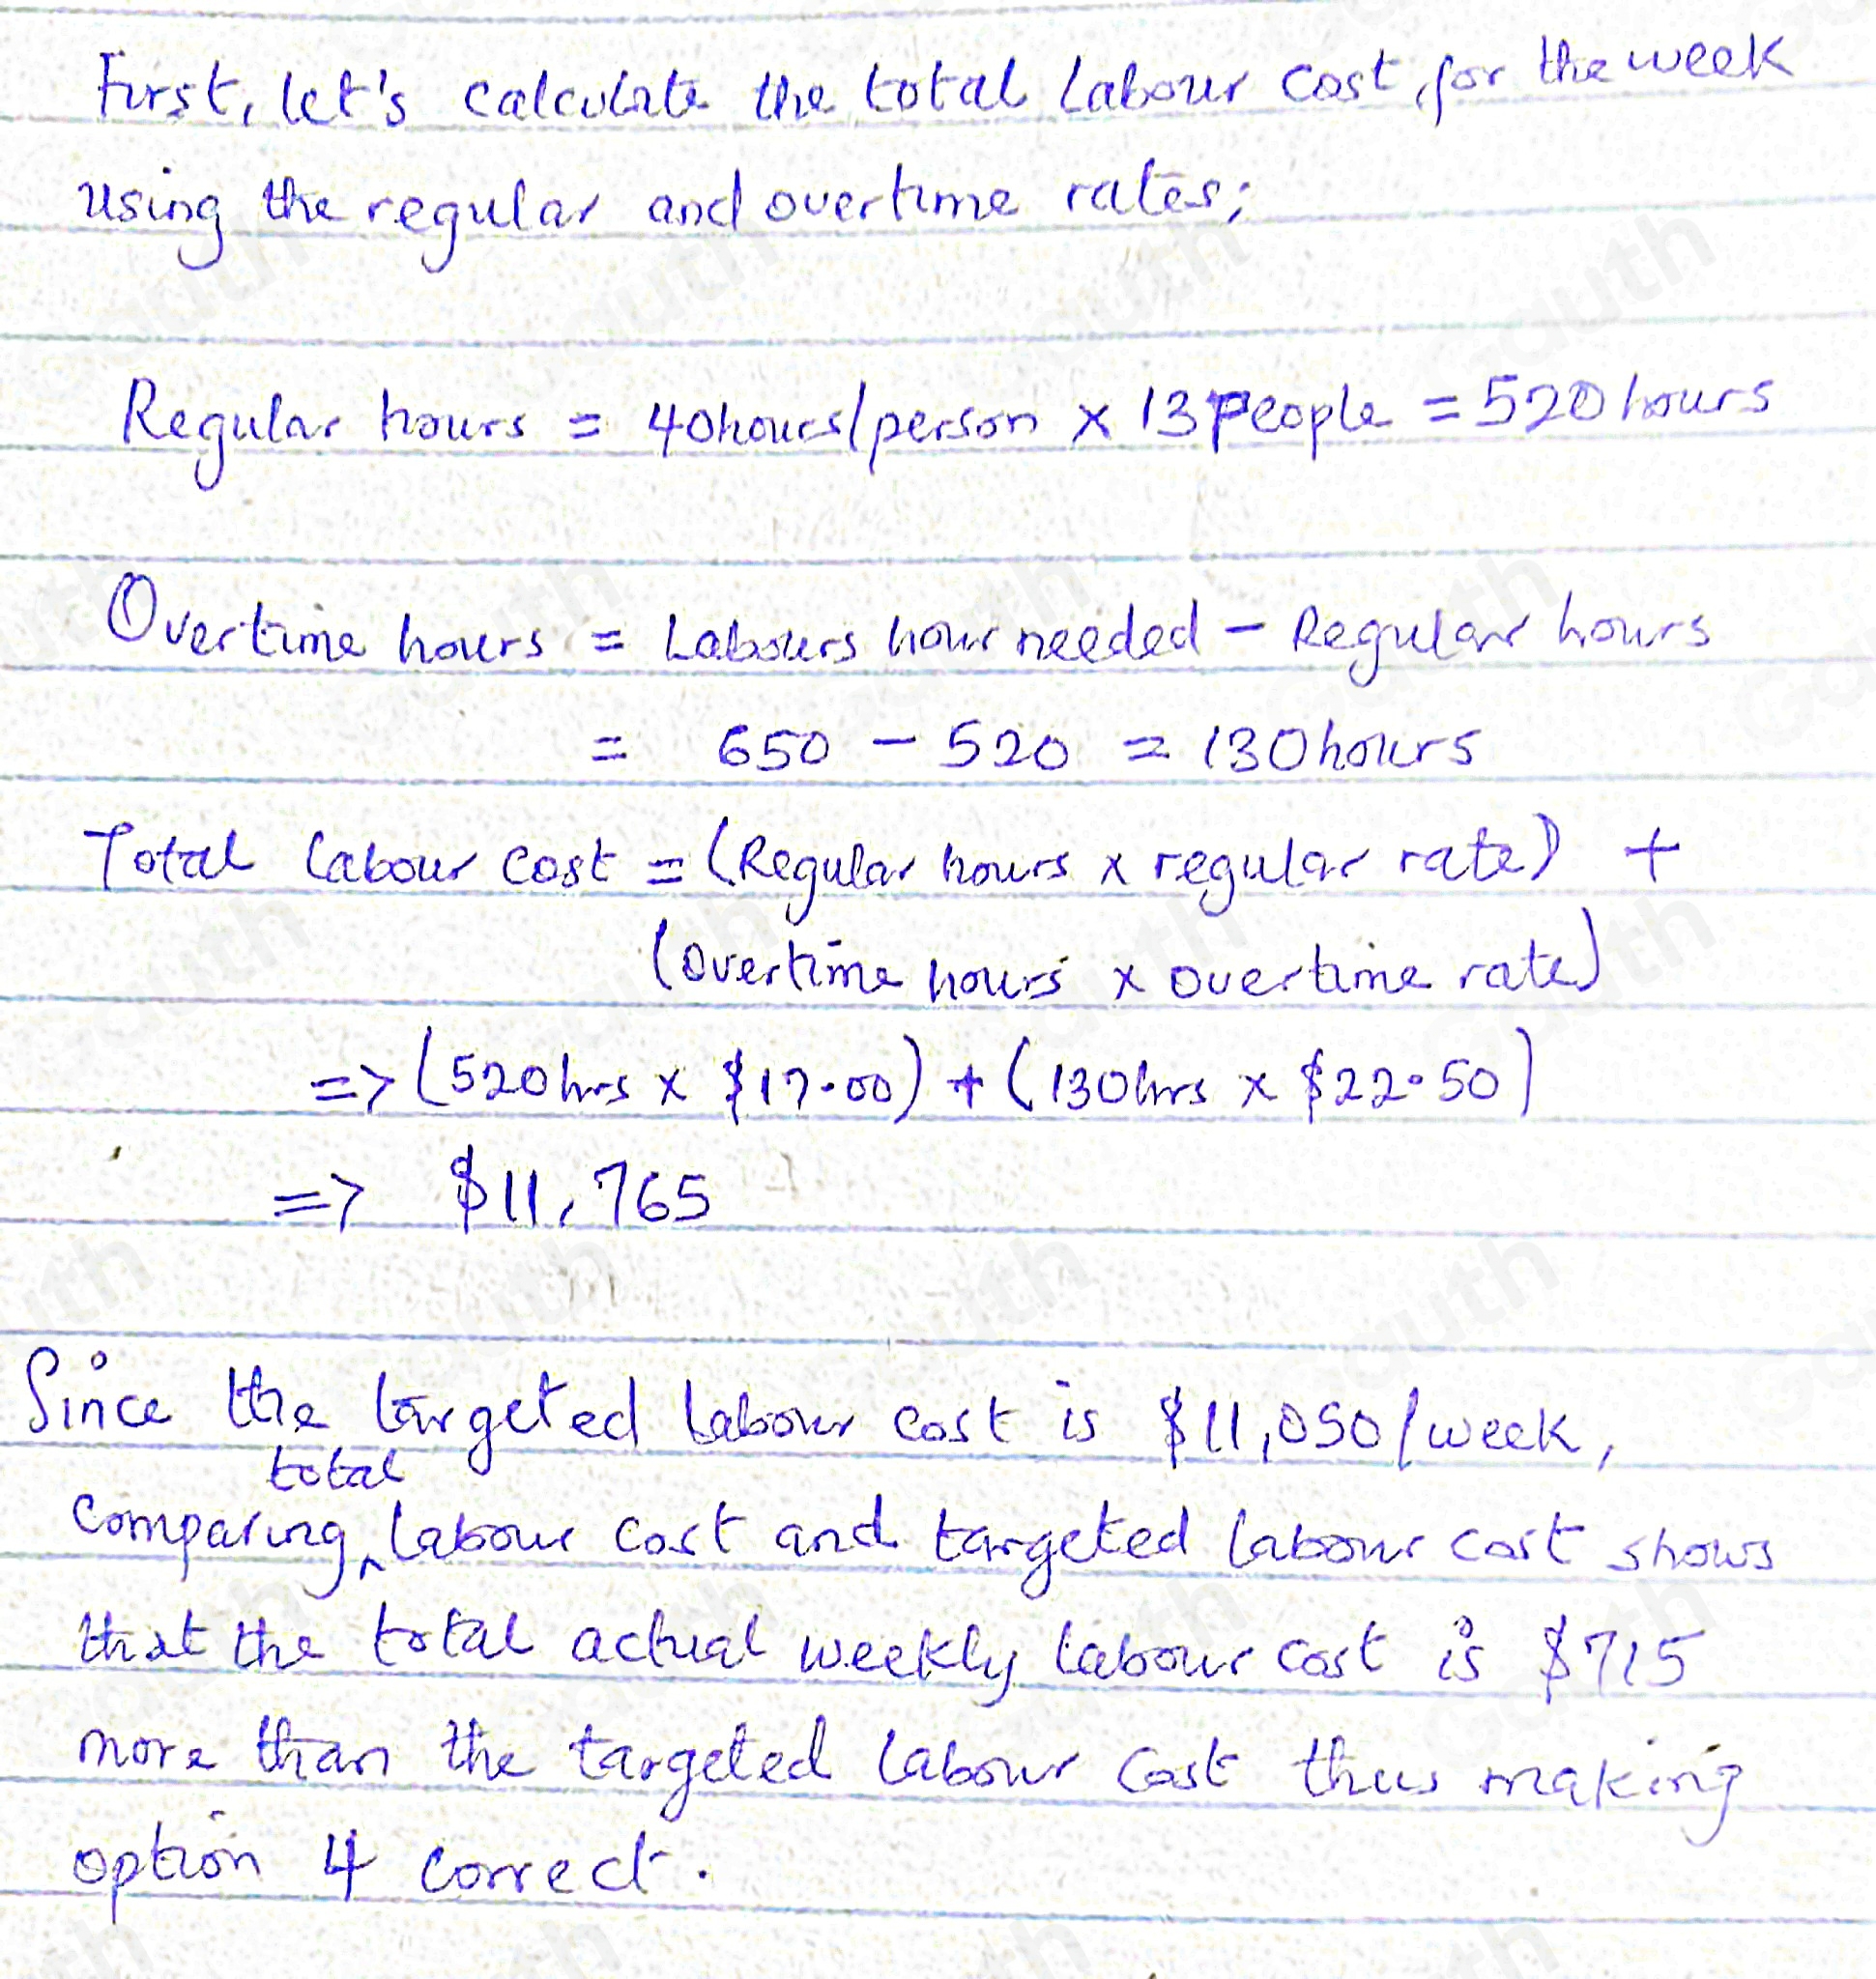 First, let's calculate the total Labour cost, for the week
using the regular and overtime rates;
Regular hours = 40hours/person × 13 People = 520 hours
Overtime hours = Labours hour needed - Regular hours
= 650 - 520 = 130 hours
Total labour cost = (Regular hours x regular rate) +
(overtime hours x overtime rate)
=> (520hrs x $17.00) + (130hrs x $22.50)
=> $11,765
Since the targeted labour cost is $11,050/week,
total
comparing ^ labour cost and targeted labour cost shows
that the total actual weekly labour cost is $715
more than the targeted labour cost thus making
option 4 correct.